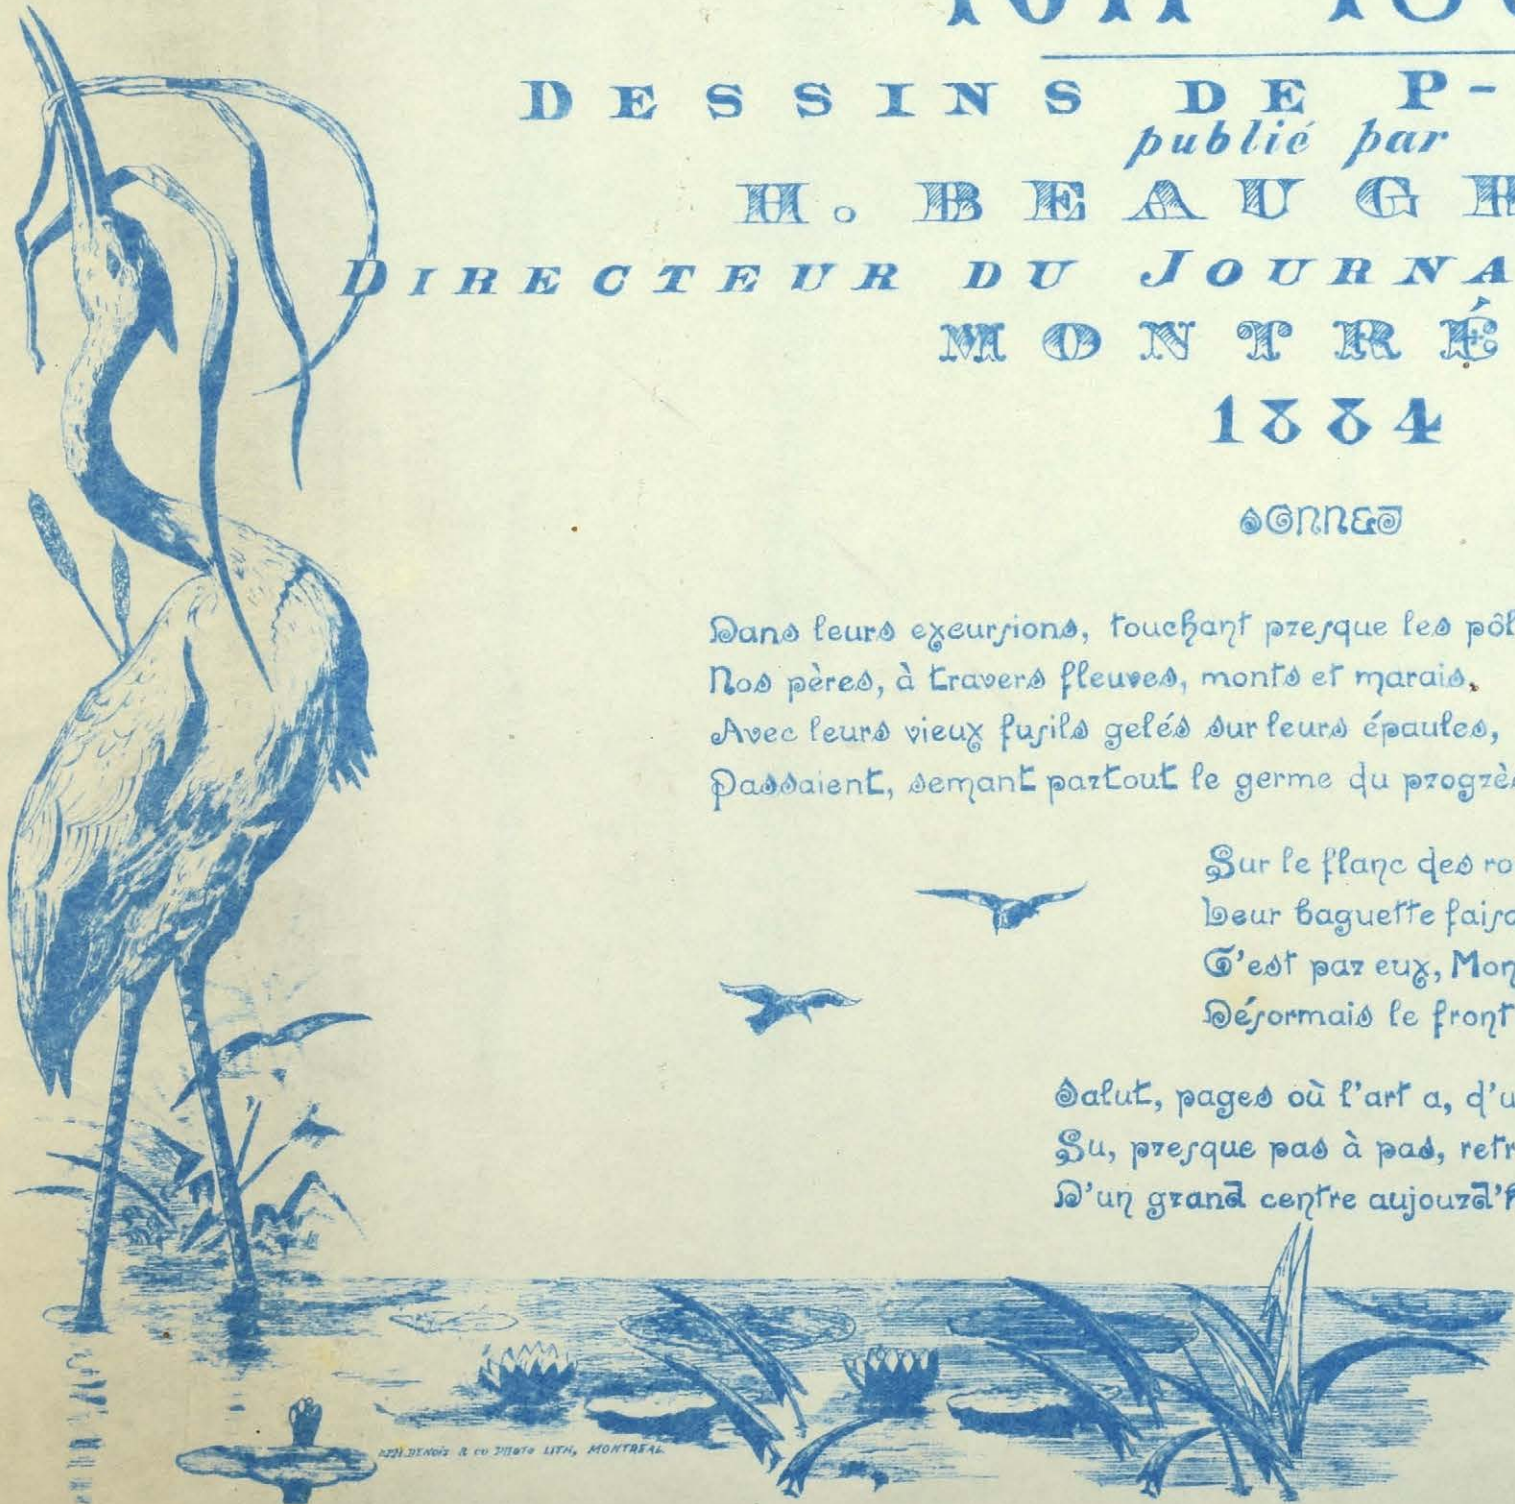 DESSINS DE P-
publié par
H. BEAUGR
DIRECTEUR DU JOURNA
MONTRÉ
1884
SONNET
Dans leurs excursions, touchant presque les pôl
Nos pères, à travers fleuves, monts et marais,
Avec leurs vieux fusils gelés sur leurs épaules,
Passaient, semant partout le germe du progrès
Sur le flanc des ro
Leur baguette faisa
C'est par eux, Mon
Désormais le front
Salut, pages où l'art a, d'u
Su, presque pas à pas, retr
D'un grand centre aujourd'h
BENOIT & CO PHOTO LITH, MONTREAL